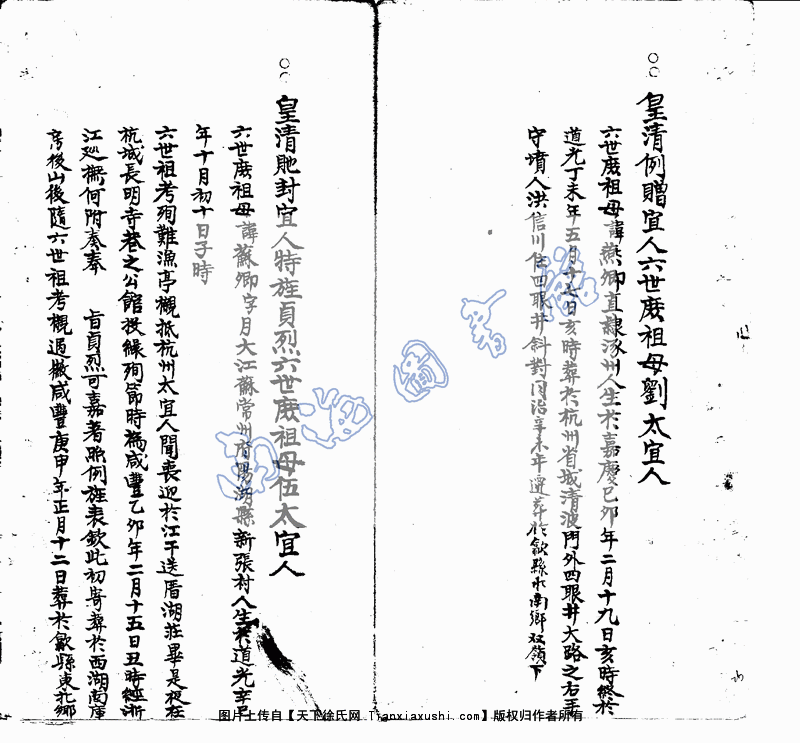 皇清例贈宜人六世庶祖母劉太宜人
六世庶祖母諱燕卿直隸涿州人生於嘉慶己卯年二月十九日亥時終於
道光丁未年五月十七日亥時葬於杭州省城清波門外四眼井大路之右
守墳人洪信川住四眼井斜對同治辛未年遷葬於歙縣水南鄉双嶺下
皇清貤封宜人特旌貞烈六世庶祖母伍太宜人
六世庶祖母諱蘇卿字月大江蘇常州府陽湖縣新張村人生於道光辛巳
年十月初十日子時
六世祖考殉難漁亭櫬抵杭州太宜人聞喪迎於江干送厝湖莊畢是夜在
杭城長明寺巷之公館投繯殉節時為咸豐乙卯年二月十五日丑時經浙
江廵撫何附奏奉 旨貞烈可嘉著照例旌表欽此初寄葬於西湖南
後山後隨六世祖考櫬過徽咸豐庚申年正月十二日葬於歙縣東北鄉
图片上传自【天下徐氏网 Tianxiaxushi.com】版权归作者所有